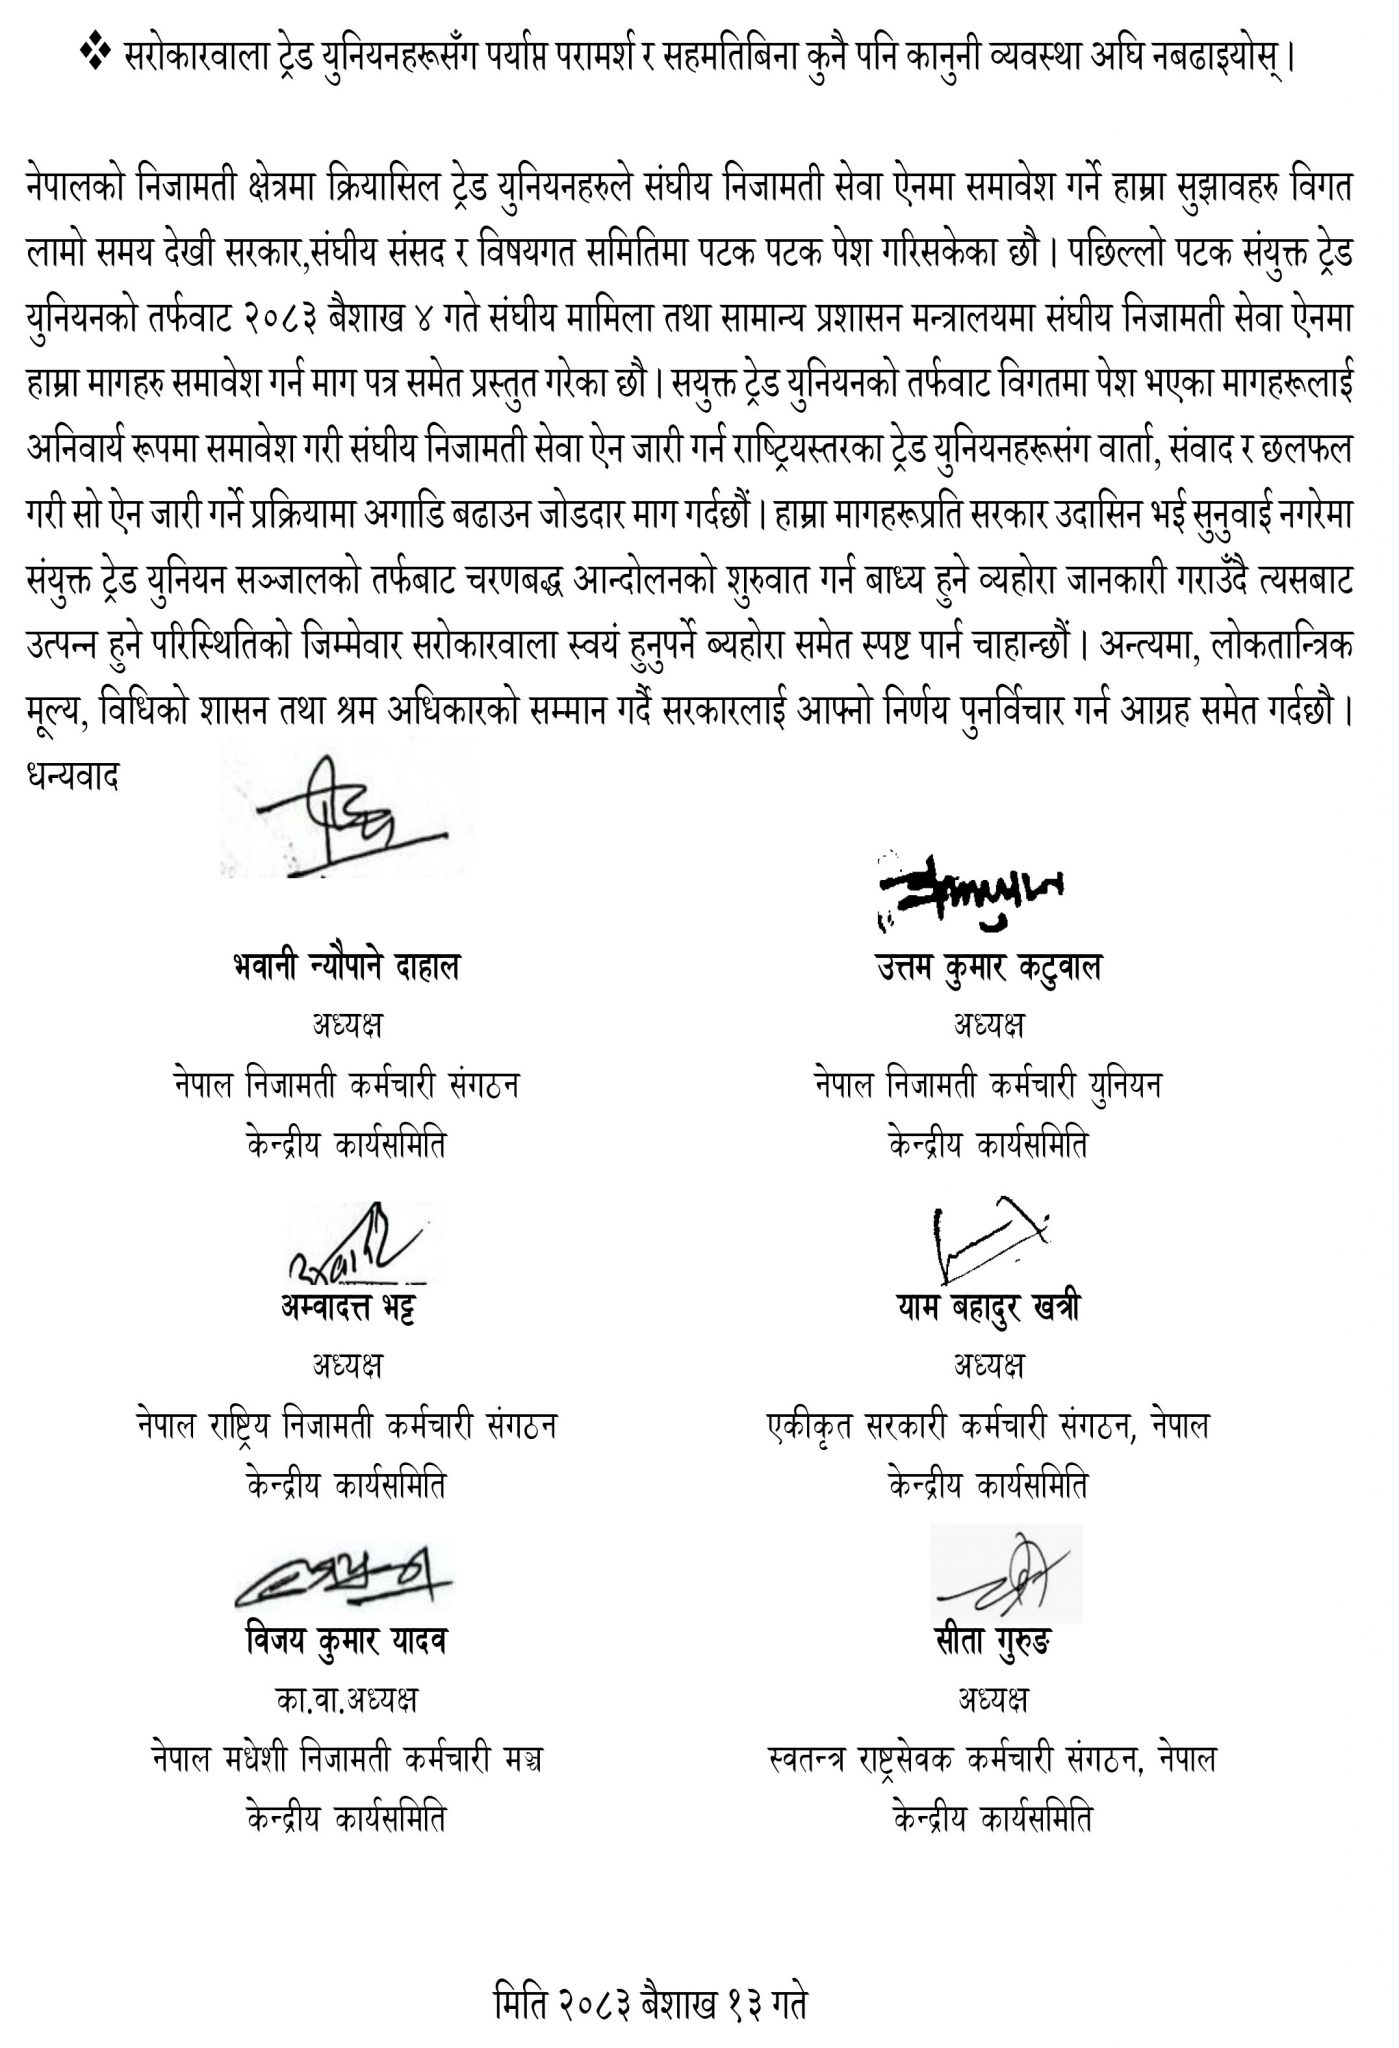 ❖ सरोकारवाला ट्रेड युनियनहरूसँग पर्याप्त परामर्श र सहमतिबिना कुनै पनि कानुनी व्यवस्था अघि नबढाइयोस् ।
नेपालको निजामती क्षेत्रमा क्रियासिल ट्रेड युनियनहरुले संघीय निजामती सेवा ऐनमा समावेश गर्ने हाम्रा सुझावहरु विगत
लामो समय देखी सरकार,संघीय संसद र विषयगत समितिमा पटक पटक पेश गरिसकेका छौ । पछिल्लो पटक संयुक्त ट्रेड
युनियनको तर्फवाट २०८३ बैशाख ४ गते संघीय मामिला तथा सामान्य प्रशासन मन्त्रालयमा संघीय निजामती सेवा ऐनमा
हाम्रा मागहरु समावेश गर्न माग पत्र समेत प्रस्तुत गरेका छौ । सयुक्त ट्रेड युनियनको तर्फवाट विगतमा पेश भएका मागहरूलाई
अनिवार्य रूपमा समावेश गरी संघीय निजामती सेवा ऐन जारी गर्न राष्ट्रियस्तरका ट्रेड युनियनहरूसंग वार्ता, संवाद र छलफल
गरी सो ऐन जारी गर्ने प्रक्रियामा अगाडि बढाउन जोडदार माग गर्दछौं । हाम्रा मागहरूप्रति सरकार उदासिन भई सुनुवाई नगरेमा
संयुक्त ट्रेड युनियन सञ्जालको तर्फबाट चरणबद्ध आन्दोलनको शुरुवात गर्न बाध्य हुने व्यहोरा जानकारी गराउँदै त्यसबाट
उत्पन्न हुने परिस्थितिको जिम्मेवार सरोकारवाला स्वयं हुनुपर्ने ब्यहोरा समेत स्पष्ट पार्न चाहान्छौं । अन्त्यमा, लोकतान्त्रिक
मूल्य, विधिको शासन तथा श्रम अधिकारको सम्मान गर्दै सरकारलाई आफ्नो निर्णय पुनर्विचार गर्न आग्रह समेत गर्दछौ ।
धन्यवाद
भवानी न्यौपाने दाहाल
उत्तम कुमार कटुवाल
अध्यक्ष
अध्यक्ष
नेपाल निजामती कर्मचारी संगठन
नेपाल निजामती कर्मचारी युनियन
केन्द्रीय कार्यसमिति
केन्द्रीय कार्यसमिति
अम्वादत्त भट्ट
याम बहादुर खत्री
अध्यक्ष
अध्यक्ष
नेपाल राष्ट्रिय निजामती कर्मचारी संगठन
एकीकृत सरकारी कर्मचारी संगठन, नेपाल
केन्द्रीय कार्यसमिति
केन्द्रीय कार्यसमिति
विजय कुमार यादव
सीता गुरुङ
का.वा.अध्यक्ष
अध्यक्ष
नेपाल मधेशी निजामती कर्मचारी मञ्च
स्वतन्त्र राष्ट्रसेवक कर्मचारी संगठन, नेपाल
केन्द्रीय कार्यसमिति
केन्द्रीय कार्यसमिति
मिति २०८३ बैशाख १३ गते